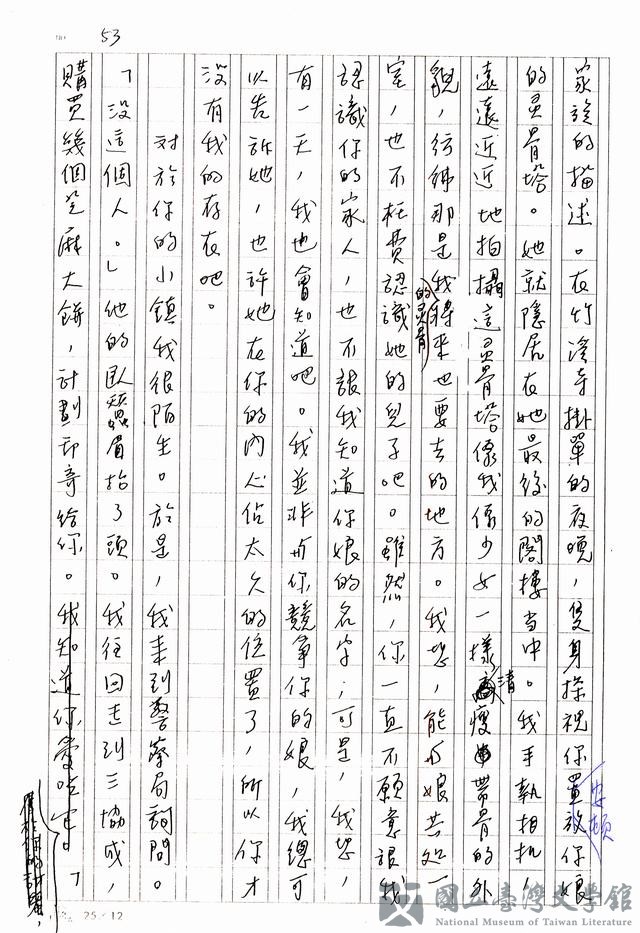 53
家族的描述。在竹溪寺掛單的夜晚，隻身探視你安頓你娘
的灵骨塔。她就隱居在她最後的閣樓当中。我手執相机，
遠遠近近地拍攝這灵骨塔像我像少女一樣清瘦帶骨的外
貌，彷彿那是我的灵骨將來也要去的地方。我想，能与娘共处一
室，也不枉費認識她的兒子吧。雖然，你一直不願意讓我
認識你的家人，也不讓我知道你娘的名字；可是，我想，
有一天，我也會知道吧。我並非与你競爭你的娘，我總可
以告訴她，也許她在你的內心佔太久的位置了，所以你才
沒有我的存在吧。
对於你的小鎮我很陌生。於是，我来到警察局詢問。
「沒這個人。」他的臥蠶眉抬了頭。我往回走到三協成，
購買幾個芝麻大餅，計劃郵寄給你。我知道你愛吃它。「
25×12
國立臺灣文學館
National Museum of Taiwan Literature